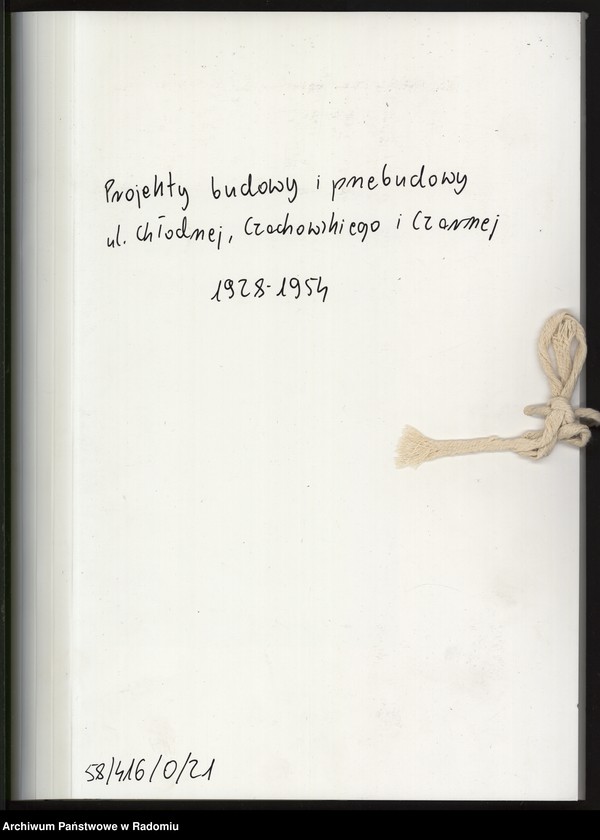 Projekty budowy i przebudowy
ul. Chłodnej, Czachowskiego i Czarnej
1928-1954
58/416/0/21
Archiwum Państwowe w Radomiu